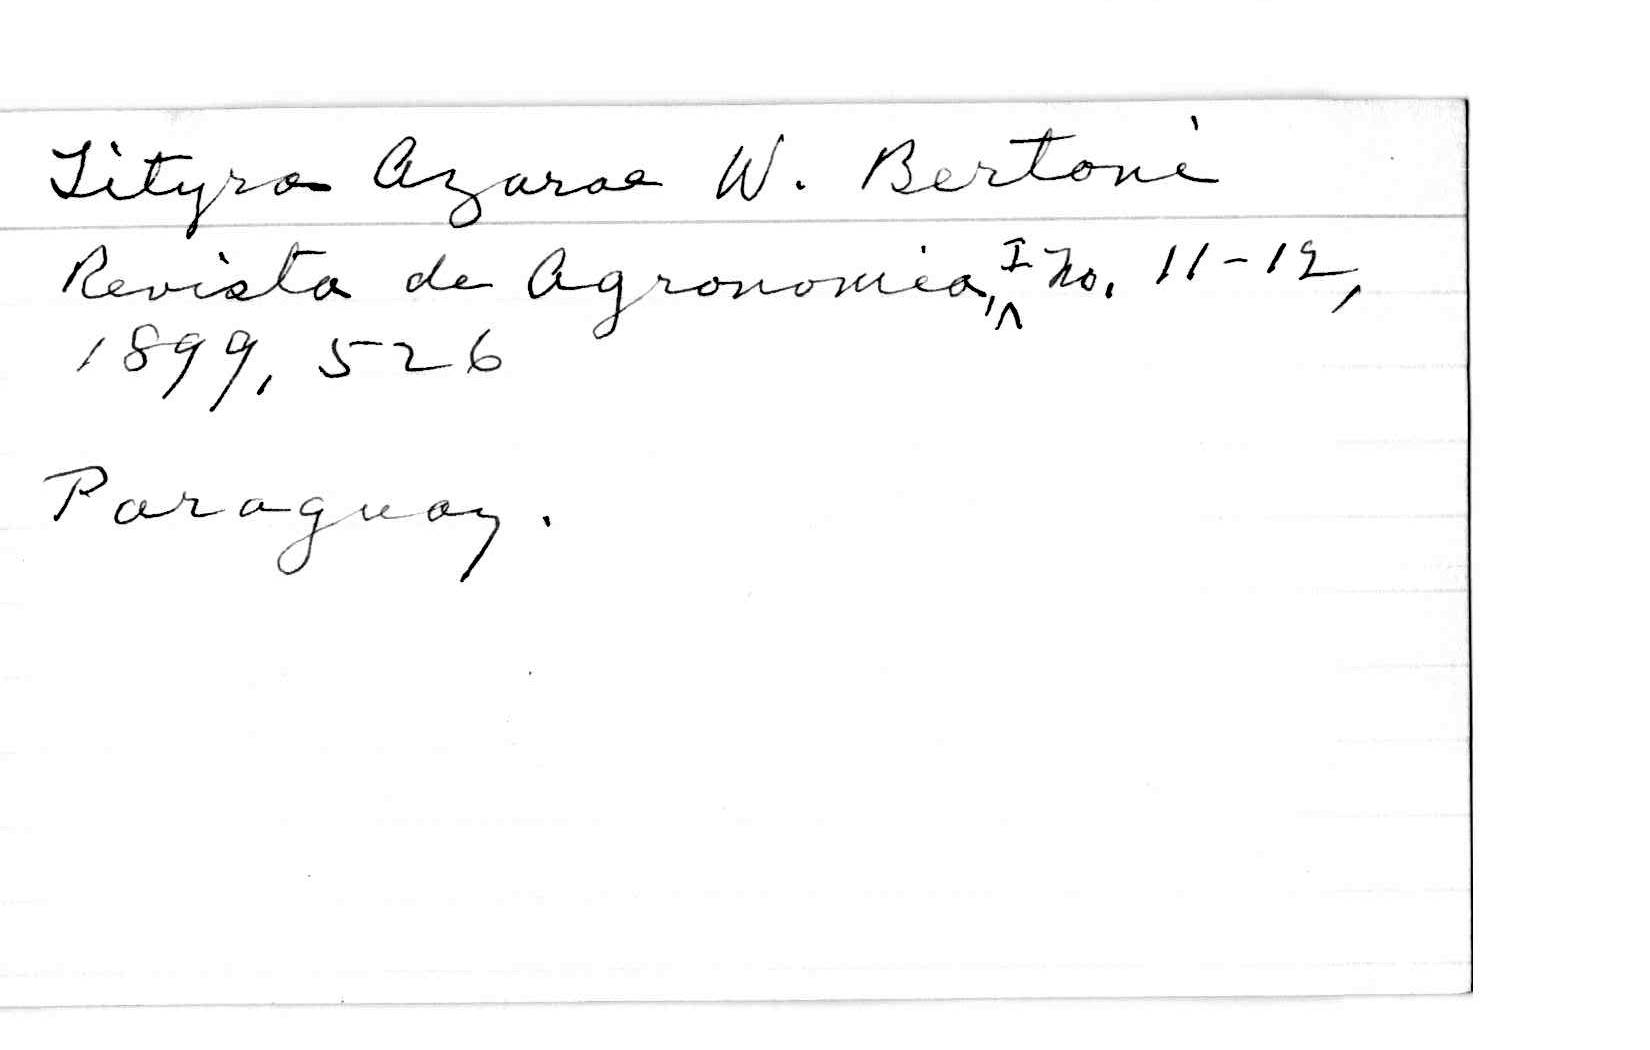 Tityra Azarae W. Bertoni
Revista de Agronomica, I No. 11-12,
1899, 526
Paraguay.